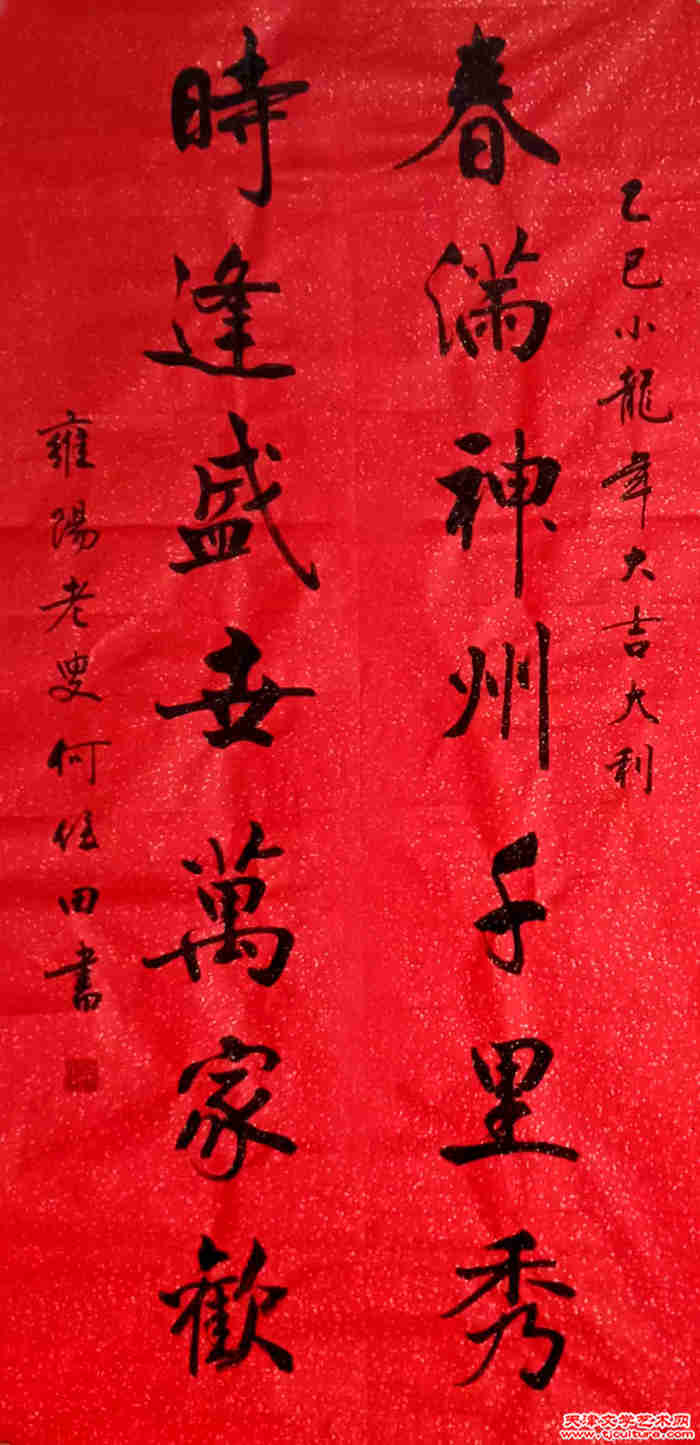 乙巳小龍年大吉大利
春滿神州千里秀
時逢盛世萬家歡
雍陽老叟何任田書
天津文学艺术网
www.tjculture.com